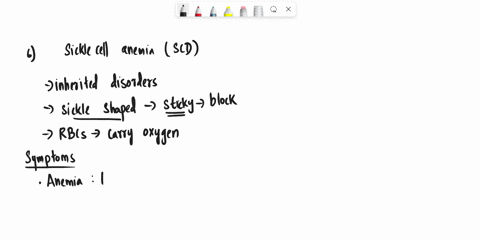 6) Sickle cell anemia (SCD)
→ inherited disorders
→ sickle shaped → sticky → block
→ RBCs → carry oxygen
Symptoms
· Anemia :